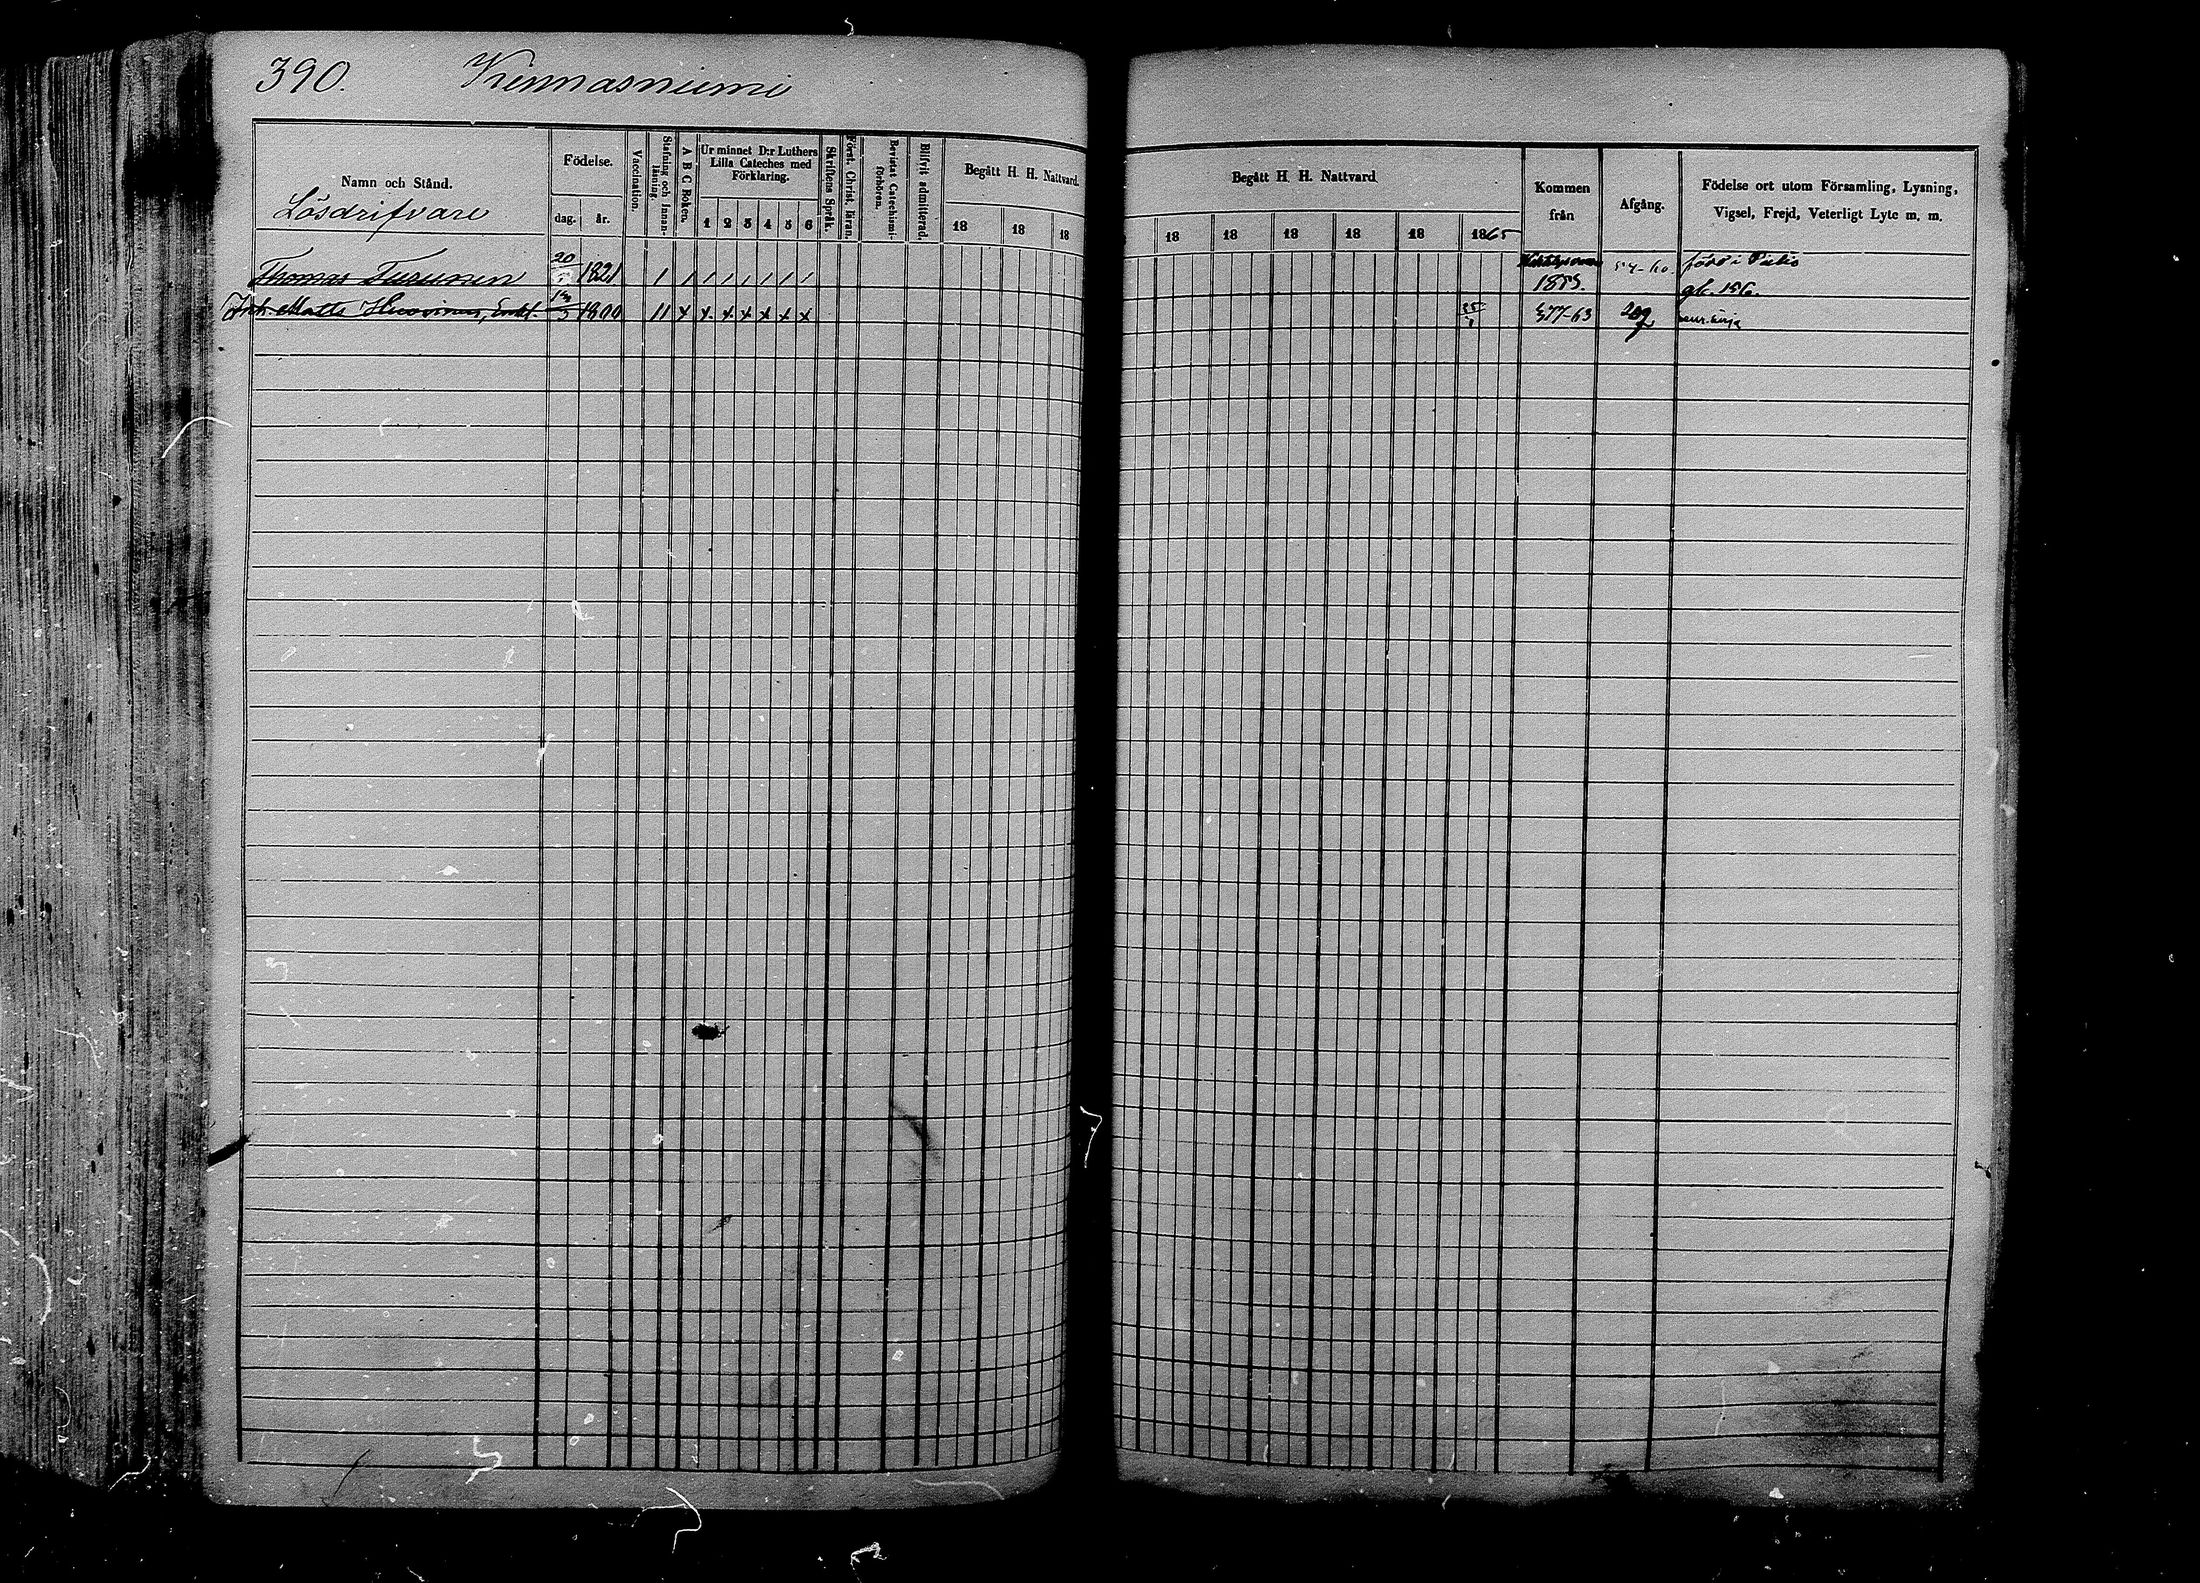 390. Kennasniemi
Namn och Stånd.
Lösdrifvare
Födelse.
dag. år.
Vaccination.
Stafning och Innan-läsning.
A B C Boken.
Ur minnet D:r Luthers Lilla Cateches med Förklaring.
1 2 3 4 5 6
Skriftens Språk.
Först. Christ. läran.
Bevistat Catechismi-förhören.
Blifvit admitterad.
Begått H. H. Nattvard.
18 18 18
Begått H. H. Nattvard
18 18 18 18 18 1865
Kommen från
Afgång.
Födelse ort utom Församling, Lysning, Vigsel, Frejd, Veterligt Lyte m. m.
Thomas Turunen 20 1821 1 1 1 1 1 1 1 1 1855. 54-60. född i Pielis
gb. 156.
Inh. Matts Huovinen, Enkl. 5 1800 11 x x x x x x x 25/1 377-63 209